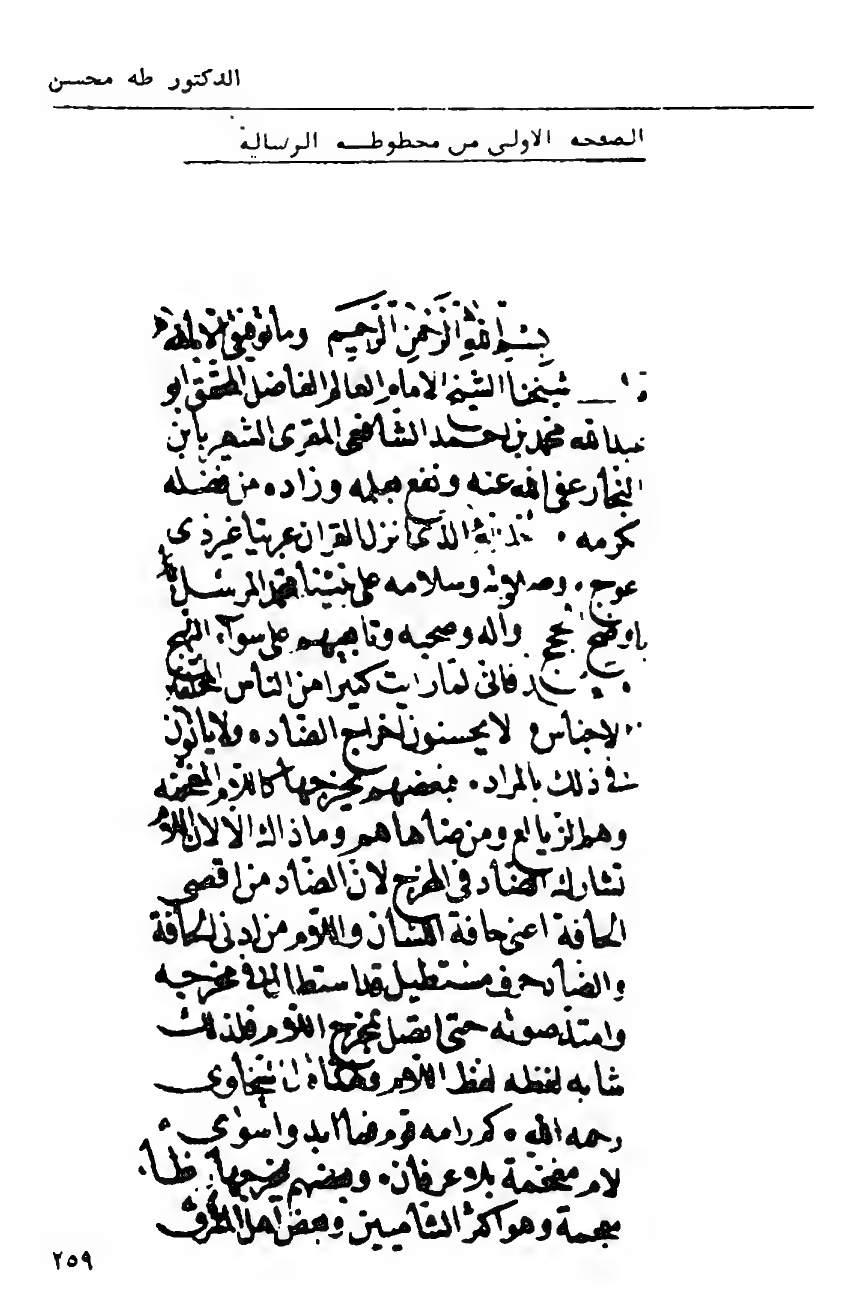 الدكتور طه محسن
الصفحه الاولى من مخطوطـــه الرسالة
بسم الله الرحمن الرحيم وما توفيقي الا بالله
شيخنا الشيخ الامام العالم الفاضل المحقق ابو
عبدالله محمد بن احمد الشافعي المقرى الشهير بابن
النجار عفى الله عنه ونفع بعلمه وزاده من فضله
وكرمه الذى انزل القران عربيا غير ذى
عوج وصلوته وسلامه على نبينا محمد المرسل
باوضح حجج وآله وصحبه وتابعيهم على سوآء النهج
فانى لما رايت كثيرا من الناس المختلفى
الاجناس لا يحسنون اخراج الضاد ولا ياتون
فى ذلك بالمراد فبعضهم يخرجها كاللام المفخمة
وهم الزيالع ومن ضاهاهم وما ذاك الا لان اللام
تشارك الضاد فى المخرج لان الضاد من اقصى
الحافة اعنى حافة اللسان واللام من ادنى الحافة
والضاد حرف مستطيل قد استطال فى مخرجه
وامتد صوته حتى اتصل بمخرج اللام فلذلك
شابه لفظه لفظ اللام السخاوى
رحمه الله كم رامه قوم فما ابدوا سوى
لام مفخمة بلا عرفان وبعضهم يخرجها ظاء
معجمة وهو اكثر الشاميين وبعض اهل الشرق
٢٥٩